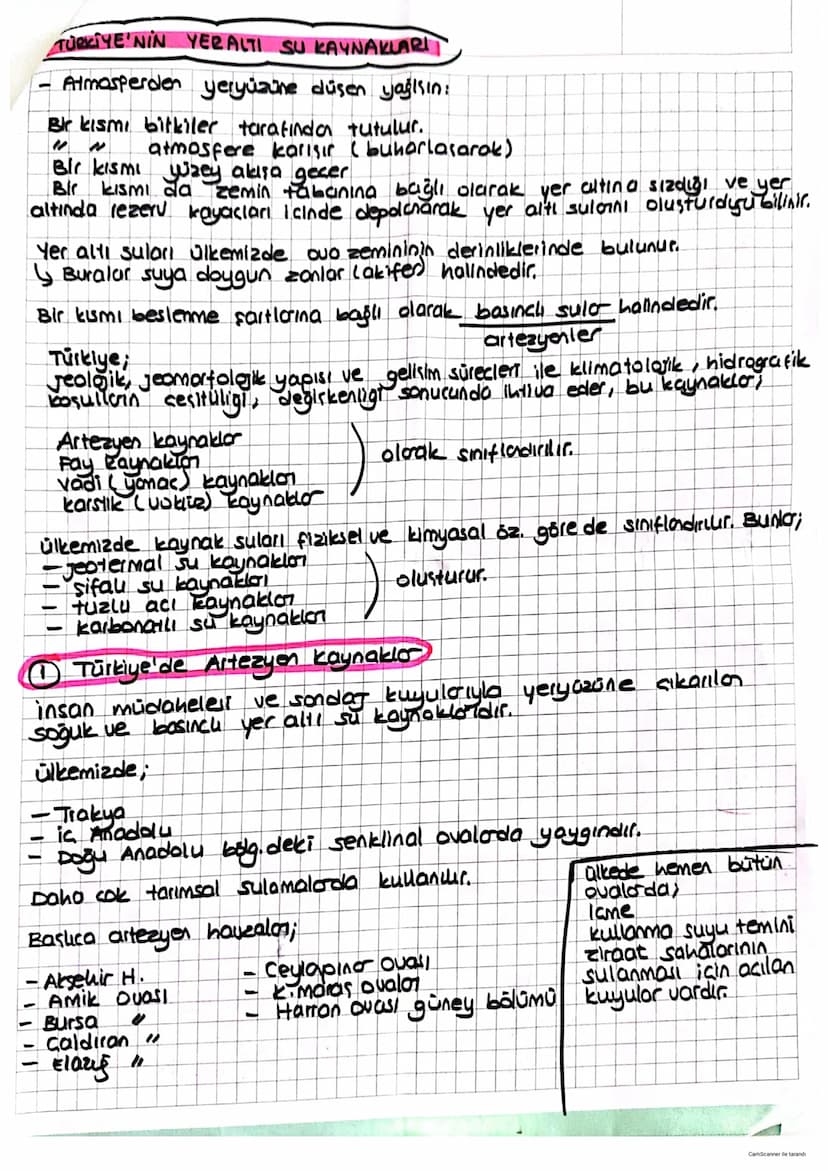 TÜRKİYE'NİN YERALTI SU KAYNAKLARI
- Atmosferden yeryüzüne düşen yağışın:
Bir kısmı bitkiler tarafından tutulur.
" " atmosfere karışır (buharlaşarak)
Bir kısmı yüzey akışa geçer
Bir kısmı da zemin tabanına bağlı olarak yer altına sızdığı ve yer
altında rezerv kayaçları içinde depolanarak yer altı sularını oluşturduğu bilinir.
Yer altı suları ülkemizde ova zemininin derinliklerinde bulunur.
↳ Buralar suya doygun zonlar (akifer) halindedir.
Bir kısmı beslenme şartlarına bağlı olarak basınçlı sular halindedir.
artezyenler
Türkiye;
jeolojik, jeomorfolojik yapısı ve gelişim süreçleri ile klimatolojik, hidrografik
koşulların çeşitliliği, değişkenliği sonucunda ihtiva eder, bu kaynaklar;
Artezyen kaynaklar
Fay kaynakları
Vadi (yamaç) kaynakları
karstik (voklüz) kaynaklar
olarak sınıflandırılır.
ülkemizde kaynak suları fiziksel ve kimyasal öz. göre de sınıflandırılır. Bunlar;
- jeotermal su kaynakları
- şifalı su kaynakları
- tuzlu acı kaynakları
- karbonatlı su kaynakları
oluşturur.
① Türkiye'de Artezyen Kaynaklar
insan müdahelesi ve sondaj kuyularıyla yeryüzüne çıkarılan
soğuk ve basınçlı yer altı su kaynaklarıdır.
ülkemizde;
- Trakya
- iç Anadolu
- Doğu Anadolu bölg.deki senklinal ovalarda yaygındır.
Daha çok tarımsal sulamalarda kullanılır.
Başlıca artezyen havzaları;
- Akşehir H.
- Amik Ovası
- Bursa "
- Çaldıran "
- Elazığ "
- Ceylapınar ovası
- K.maraş ovaları
- Harran ovası güney bölümü
ülkede hemen bütün
ovalarda;
içme
kullanma suyu temini
ziraat sahalarının
sulanması için açılan
kuyular vardır.
CamScanner ile tarandı